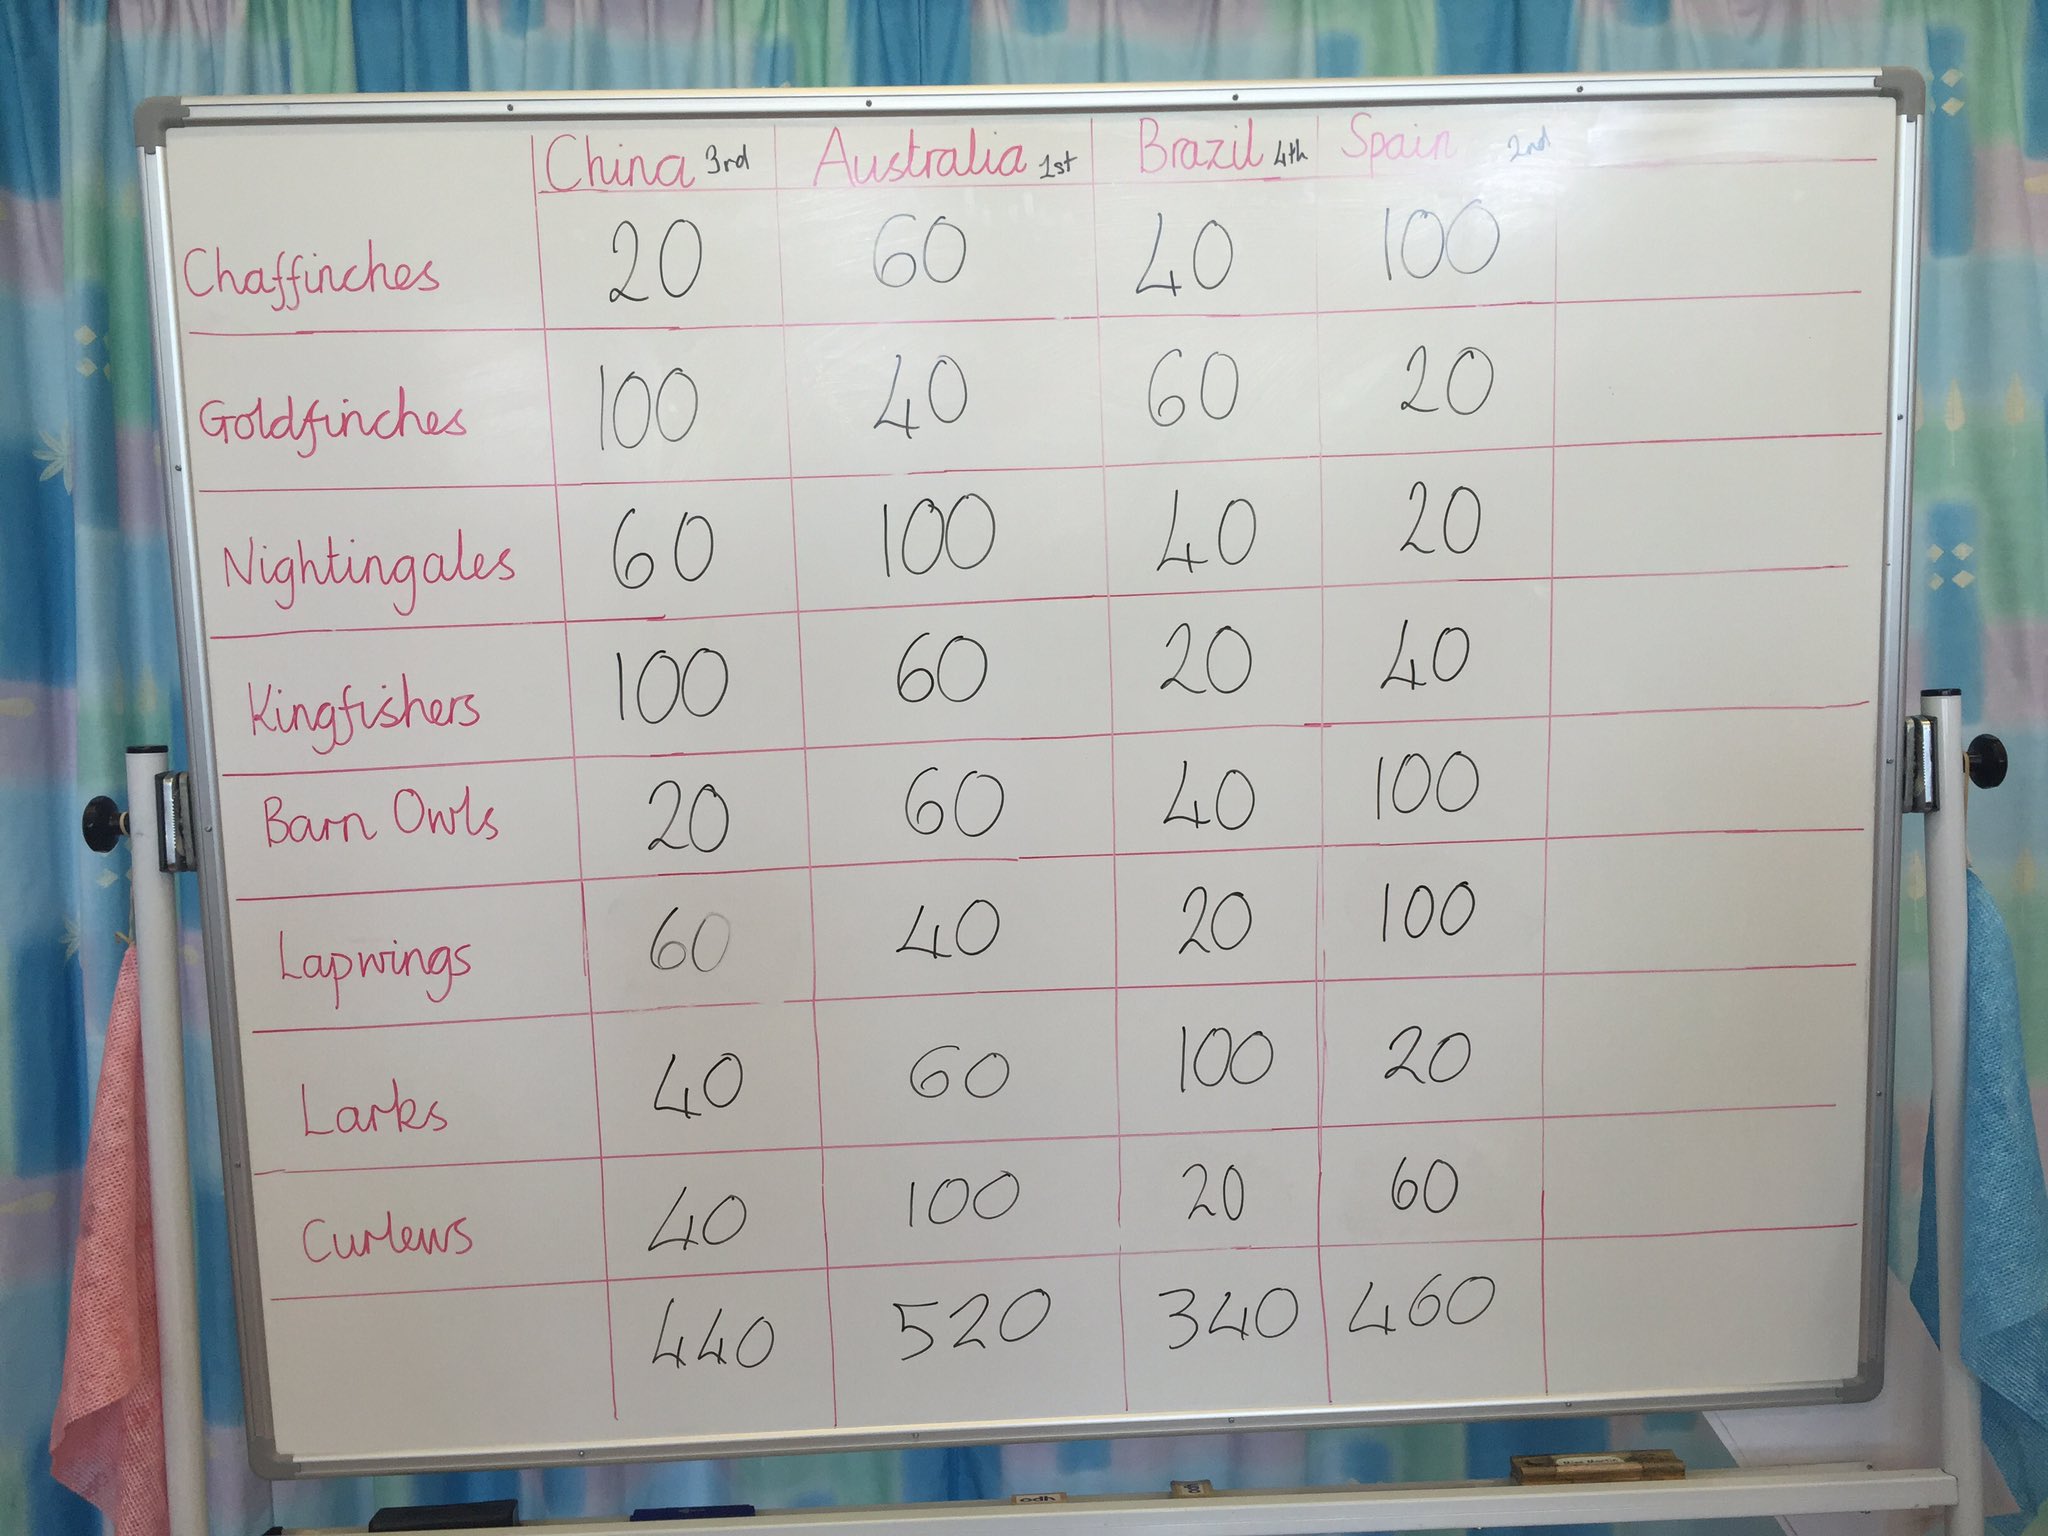 China 3rd Australia 1st Brazil 4th Spain 2nd
Chaffinches 20 60 40 100
Goldfinches 100 40 60 20
Nightingales 60 100 40 20
Kingfishers 100 60 20 40
Barn Owls 20 60 40 100
Lapwings 60 40 20 100
Larks 40 60 100 20
Curlews 40 100 20 60
440 520 340 460